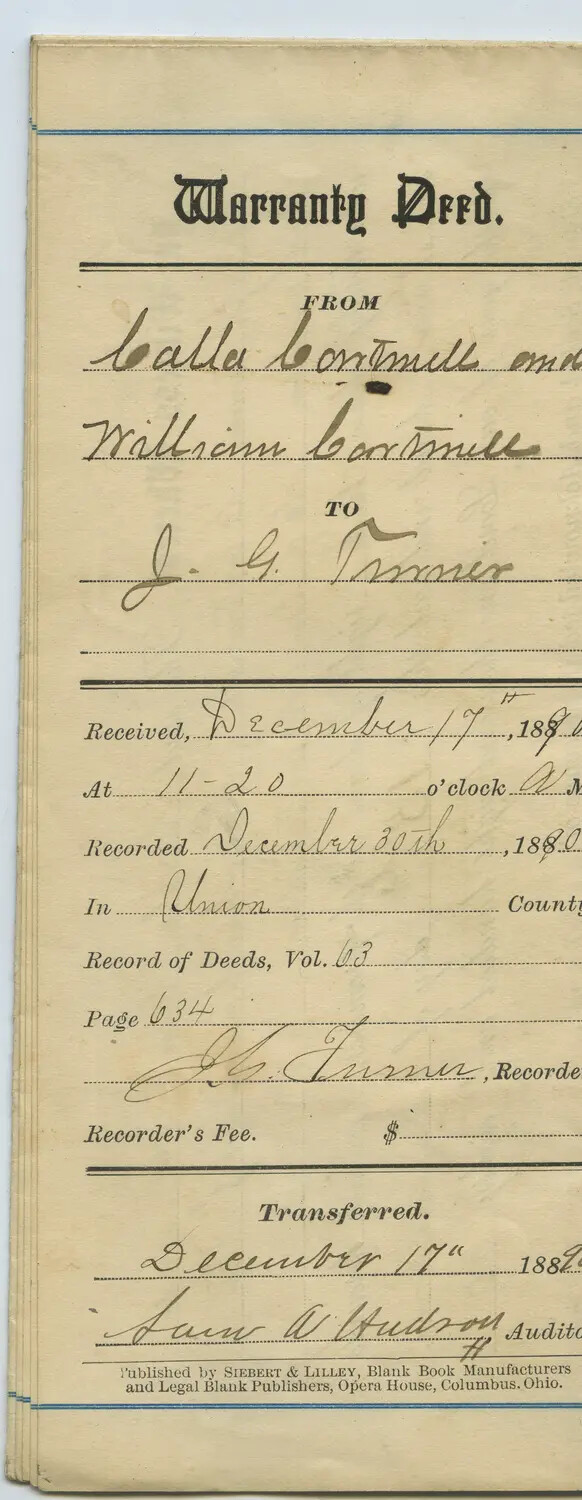 Warranty Deed.
FROM
Calla Cartmell and
William Cartmell
TO
J. G. Turner
Received, December 17", 1890
At 11-20 o'clock A M
Recorded December 30th, 1890
In Union County
Record of Deeds, Vol. 63
Page 634
J.G. Turner, Recorde
Recorder's Fee. $
Transferred.
December 17" 1889
Sam A Hudson Audito
Published by SIEBERT & LILLEY, Blank Book Manufacturers
and Legal Blank Publishers, Opera House, Columbus. Ohio.